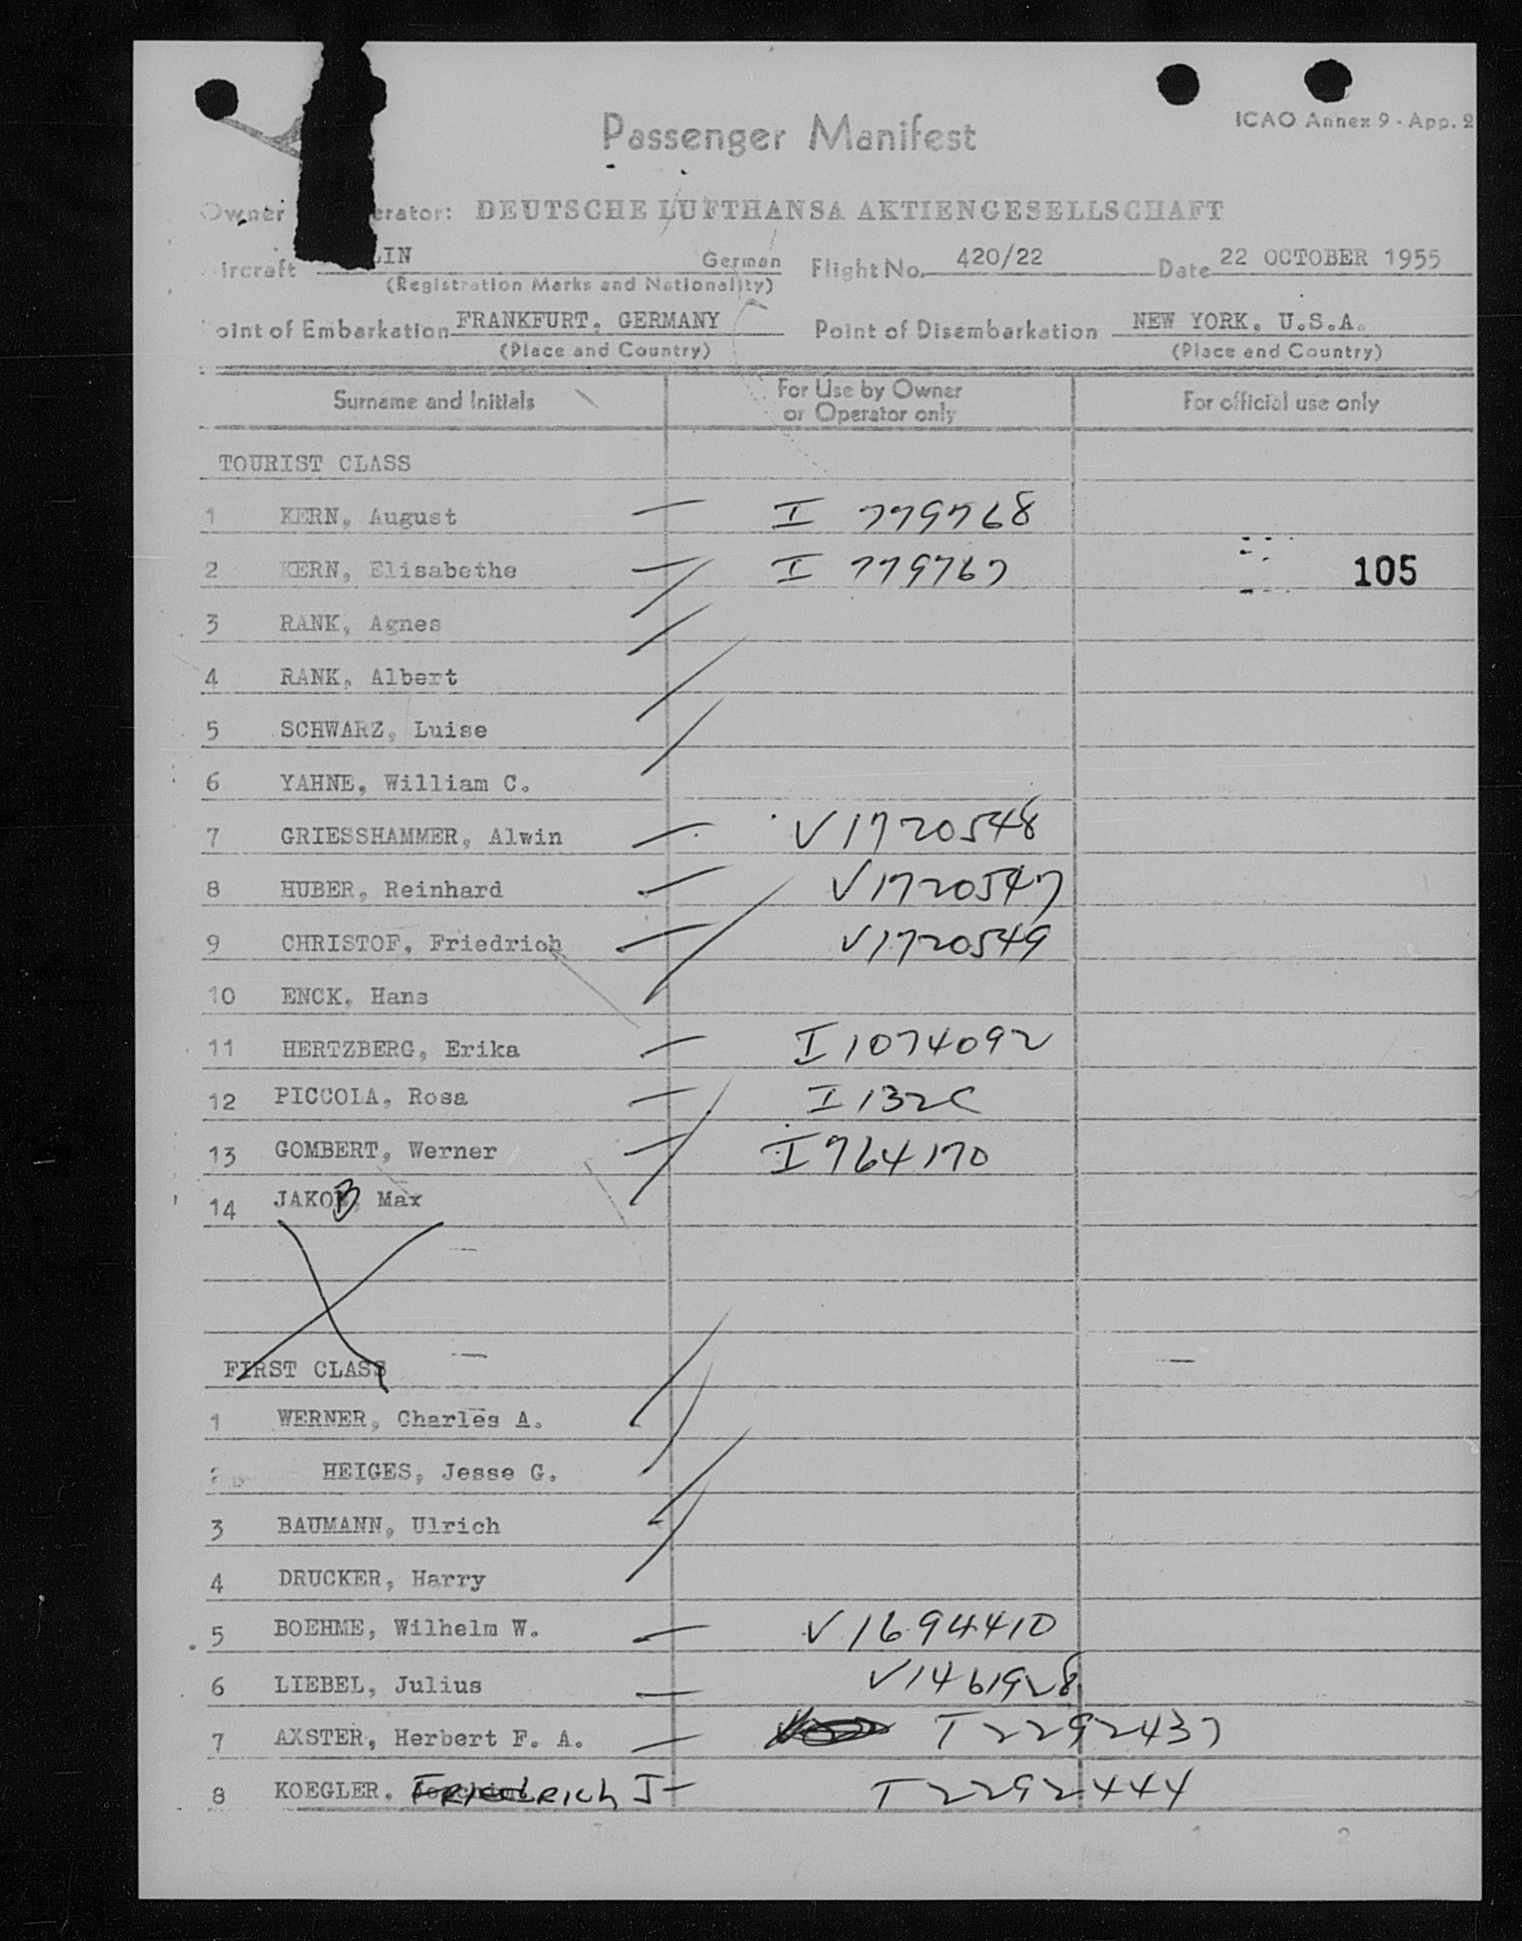 Passenger Manifest
ICAO Annex 9 - App. 2
Owner erator: DEUTSCHE LUFTHANSA AKTIENGESELLSCHAFT
ircraft LIN German Flight No. 420/22 Date 22 OCTOBER 1955
(Registration Marks and Nationality)
oint of Embarkation FRANKFURT, GERMANY Point of Disembarkation NEW YORK, U.S.A.
(Place and Country) (Place and Country)
Surname and Initials For Use by Owner or Operator only For official use only
TOURIST CLASS
1 KERN, August — I 779768
2 KERN, Elisabethe — I 779767 105
3 RANK, Agnes
4 RANK, Albert
5 SCHWARZ, Luise
6 YAHNE, William C.
7 GRIESSHAMMER, Alwin — V1720548
8 HUBER, Reinhard — V1720547
9 CHRISTOF, Friedrich — V1720549
10 ENCK, Hans
11 HERTZBERG, Erika — I1074092
12 PICCOLA, Rosa — I 132C
13 GOMBERT, Werner — I764170
14 JAKOB, Max
FIRST CLASS
1 WERNER, Charles A.
2 HEIGES, Jesse G.
3 BAUMANN, Ulrich
4 DRUCKER, Harry
5 BOEHME, Wilhelm W. — V1694410
6 LIEBEL, Julius — V1461928
7 AXSTER, Herbert F. A. — T2292437
8 KOEGLER, FRIEDRICH J — T2292444
1 2